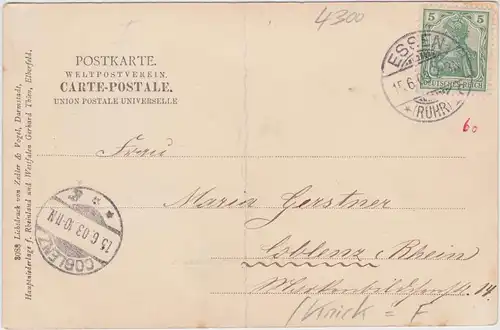 4300
5 5
DEUTSCHES REICH
ESSEN
15.6.
*(RUHR)
POSTKARTE.
WELTPOSTVEREIN.
CARTE-POSTALE.
UNION POSTALE UNIVERSELLE
60
Frau
Maria Gerstner
Coblenz Rhein
14
COBLENZ
15.6.03.10-11N
3088 Lichtdruck von Zedler & Vogel, Darmstadt,
Hauptniederlage f. Rheinland und Westfalen Gerhard Thien, Elberfeld.